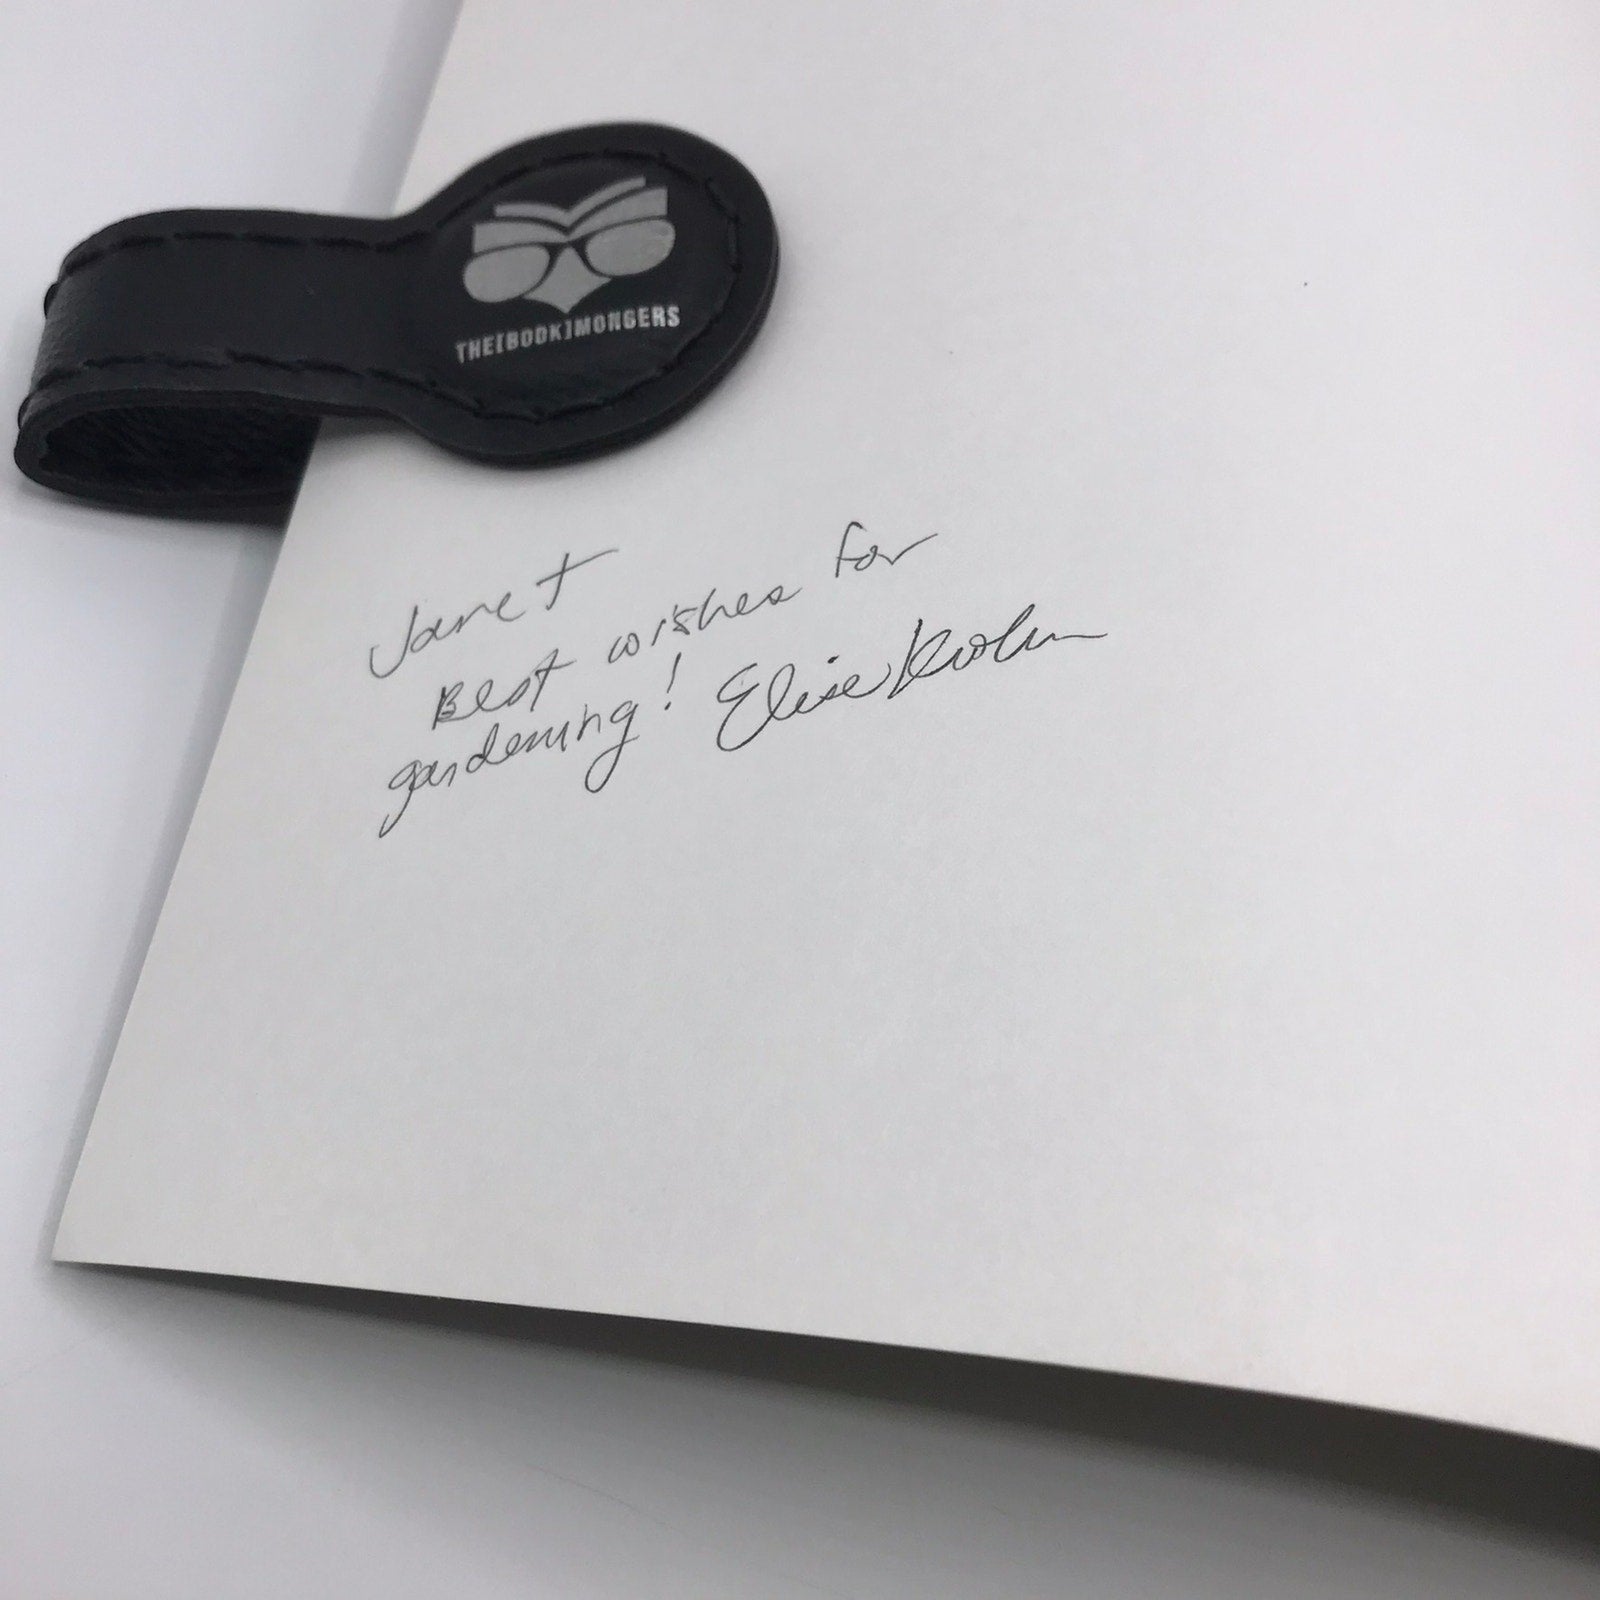 THE[BOOK]MONGERS
Janet
Best wishes for
gardening! Elise Krohn